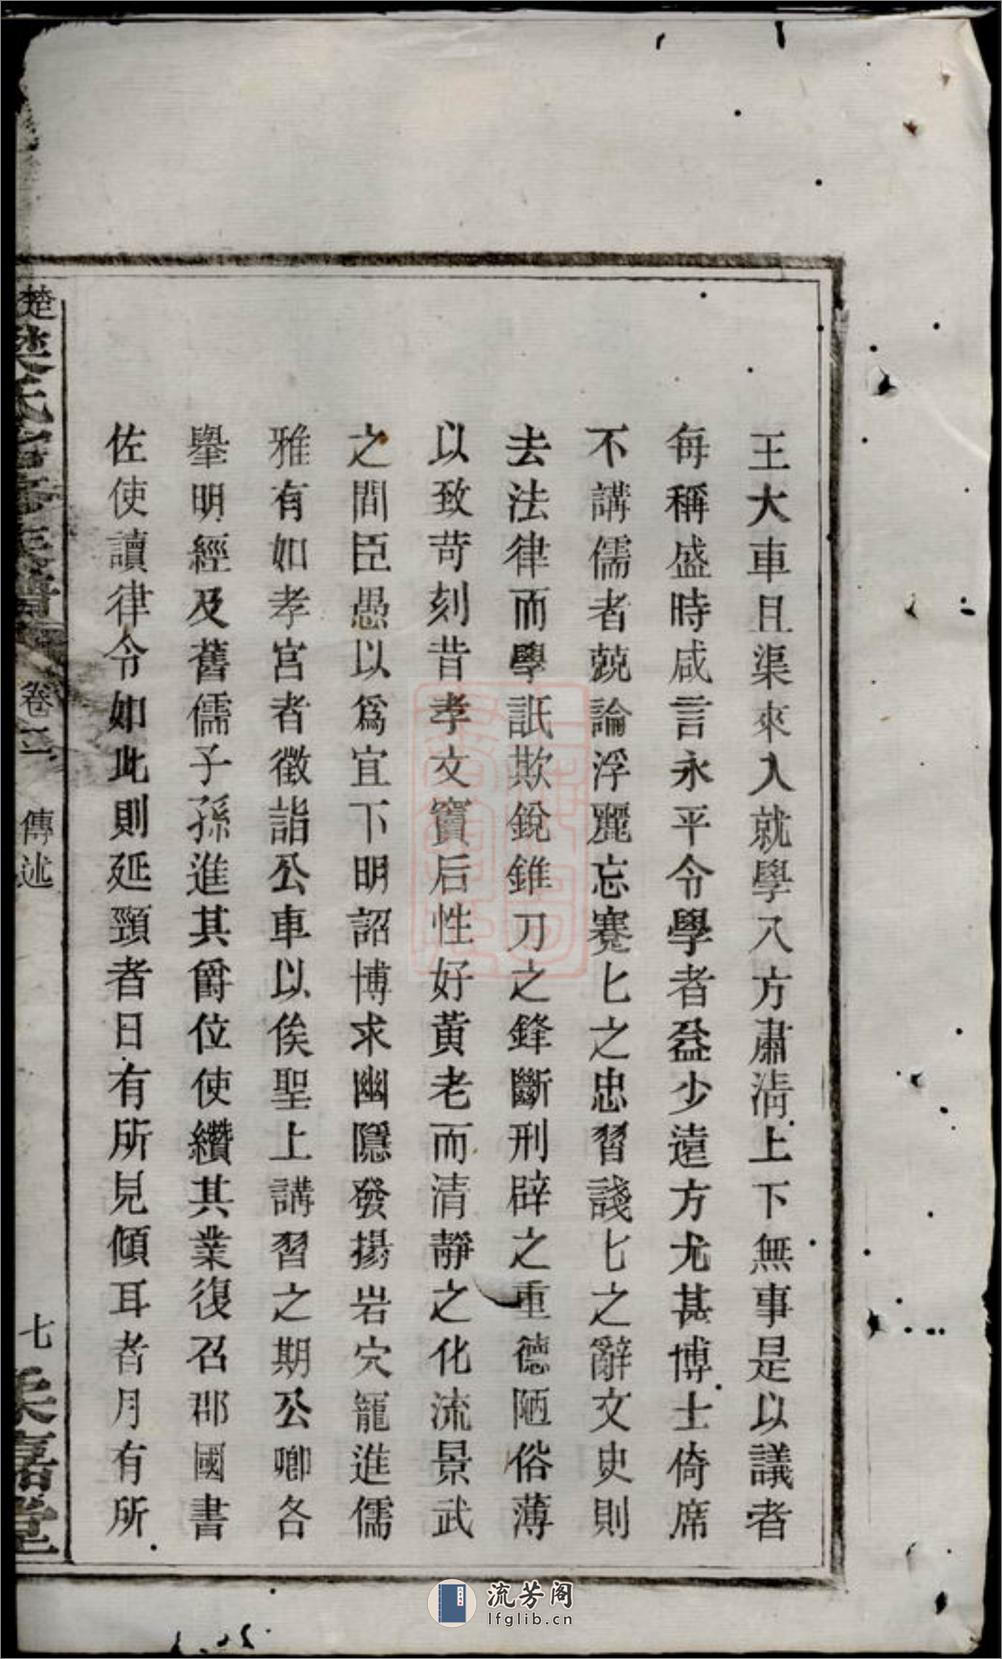 王大車且渠來入就學八方肅淸上下無事是以議者
每稱盛時咸言永平令學者益少遠方尤甚博士倚席
不講儒者兢論浮麗忘蹇匕之忠習諓匕之辭文史則
去法律而學詆欺銳錐刀之鋒斷刑辟之重德陋俗薄
以致苛刻昔孝文竇后性好黃老而清靜之化流景武
之間臣愚以爲宜下明詔博求幽隱發揚岩穴寵進儒
雅有如孝宮者徵詣公車以俟聖上講習之期公卿各
舉明經及舊儒子孫進其爵位使纘其業復召郡國書
佐使讀律令如此則延頸者日有所見傾耳者月有所
楚
卷二
傳述
七
流芳阁
lfglib.cn